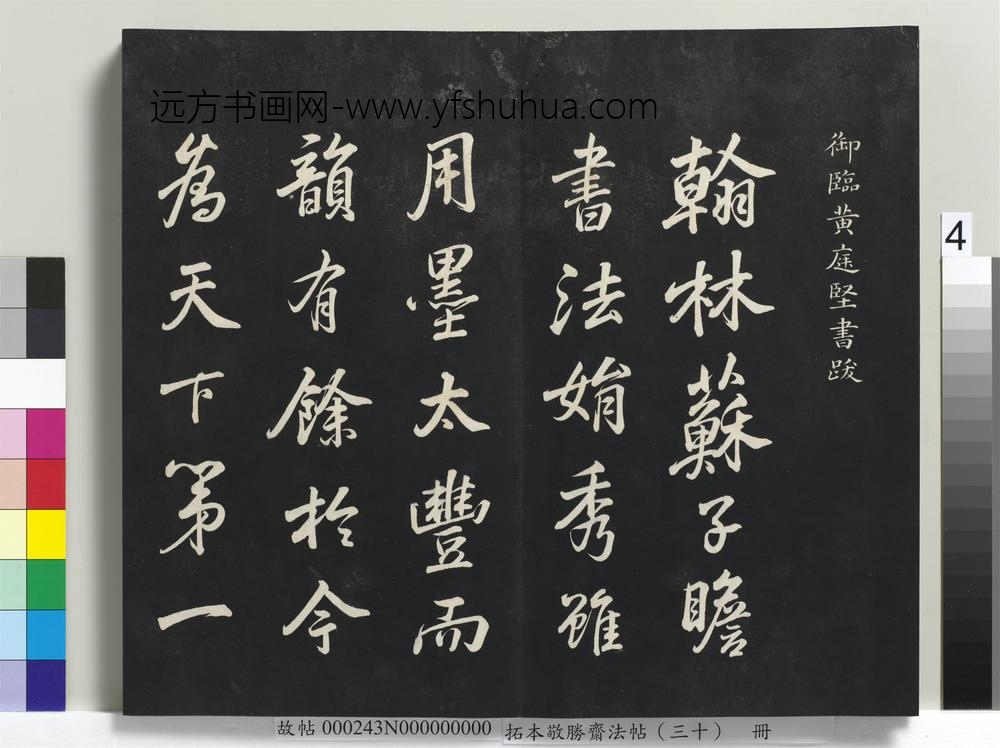 远方书画网-www.yfshuhua.com
御臨黄庭堅書跋
翰林蘇子瞻
書法娟秀雖
用墨太豐而
韻有餘於今
為天下第一
4
故帖 000243N000000000
拓本敬勝齋法帖（三十） 冊